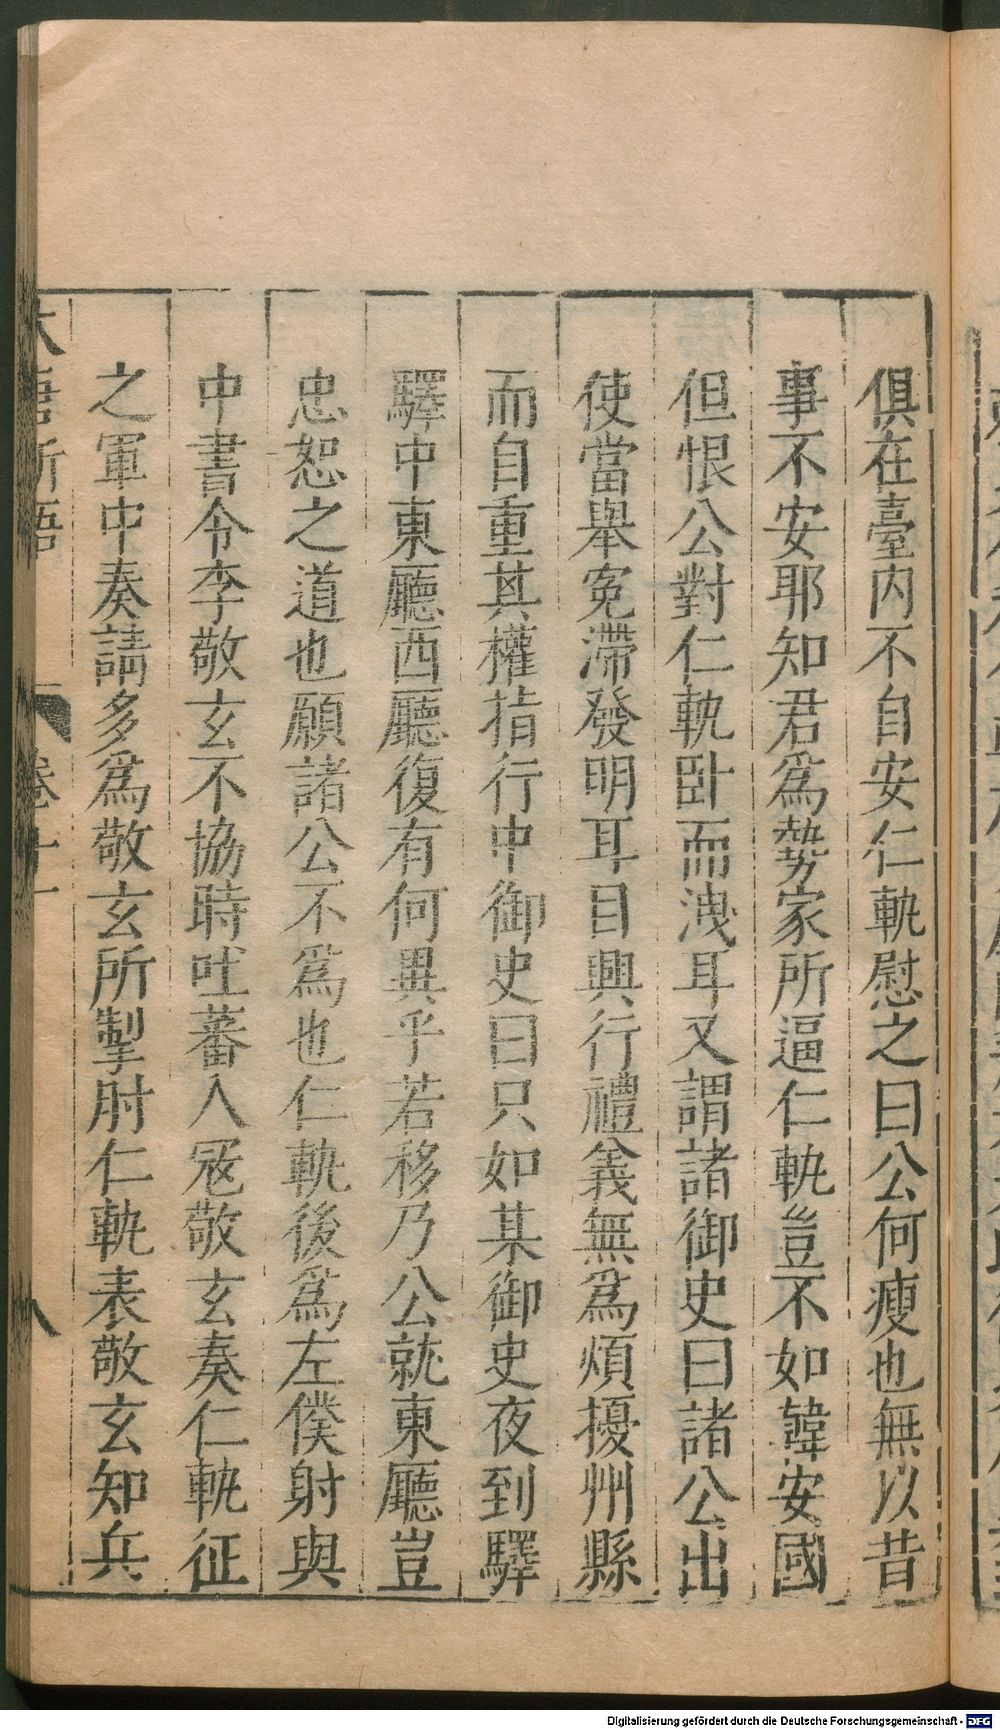 俱在臺内不自安仁軌慰之曰公何瘦也無以昔
事不安耶知君爲勢家所逼仁軌豈不如韓安國
但恨公對仁軌卧而洩耳又謂諸御史曰諸公出
使當舉寃滯發明耳目興行禮義無爲煩擾州縣
而自重其權指行中御史曰只如某御史夜到驛
驛中東廳西廳復有何異乎若移乃公就東廳豈
忠恕之道也願諸公不爲也仁軌後爲左僕射與
中書令李敬玄不協時吐蕃入冦敬玄奏仁軌征
之軍中奏請多爲敬玄所掣肘仁軌表敬玄知兵
卷十一
八
Digitalisierung gefördert durch die Deutsche Forschungsgemeinschaft - DFG